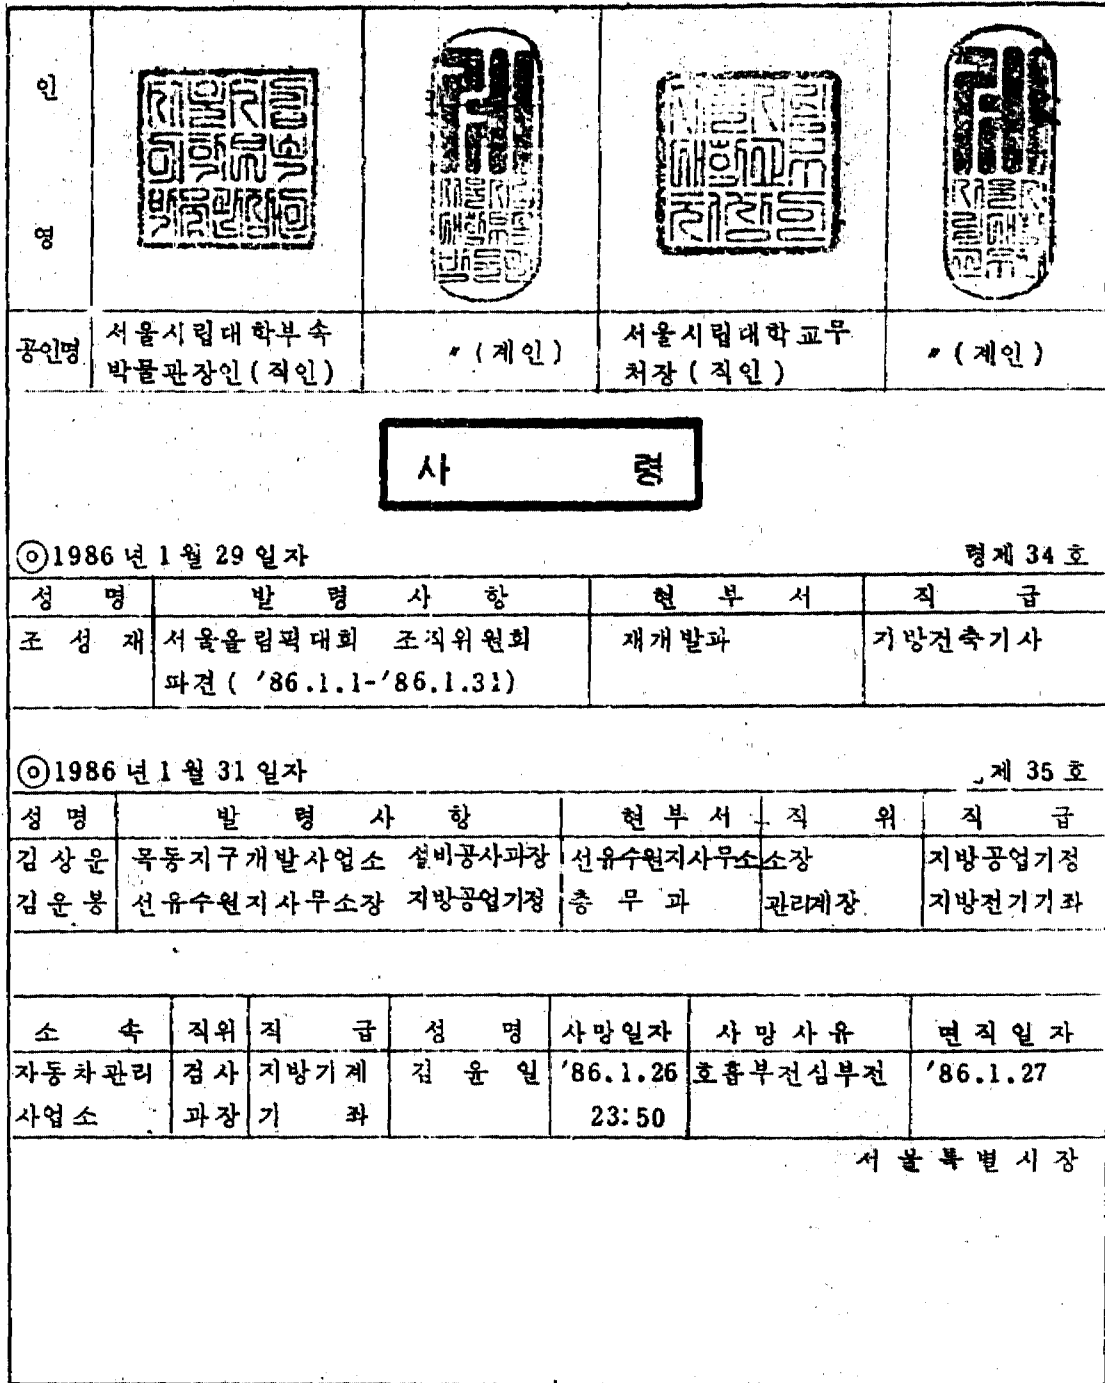 인 영
공인명 서울시립대학부속 박물관장인(직인) 〃(계인) 서울시립대학교무 처장(직인) 〃(계인)
사 령
◎1986년 1월 29일자 령제 34호
성 명 발 령 사 항 현 부 서 직 급
조 성 재 서울올림픽대회 조직위원회 재개발과 지방건축기사
파견( '86.1.1-'86.1.31)
◎1986년 1월 31일자 제 35호
성 명 발 령 사 항 현 부 서 직 위 직 급
김상운 목동지구개발사업소 설비공사과장 선유수원지사무소 소장 지방공업기정
김운봉 선유수원지사무소장 지방공업기정 총 무 과 관리계장 지방전기기좌
소 속 직위 직 급 성 명 사망일자 사망사유 면직일자
자동차관리 검사 지방기계 김 윤 일 '86.1.26 호흡부전심부전 '86.1.27
사업소 과장 기 좌 23:50
서울특별시장